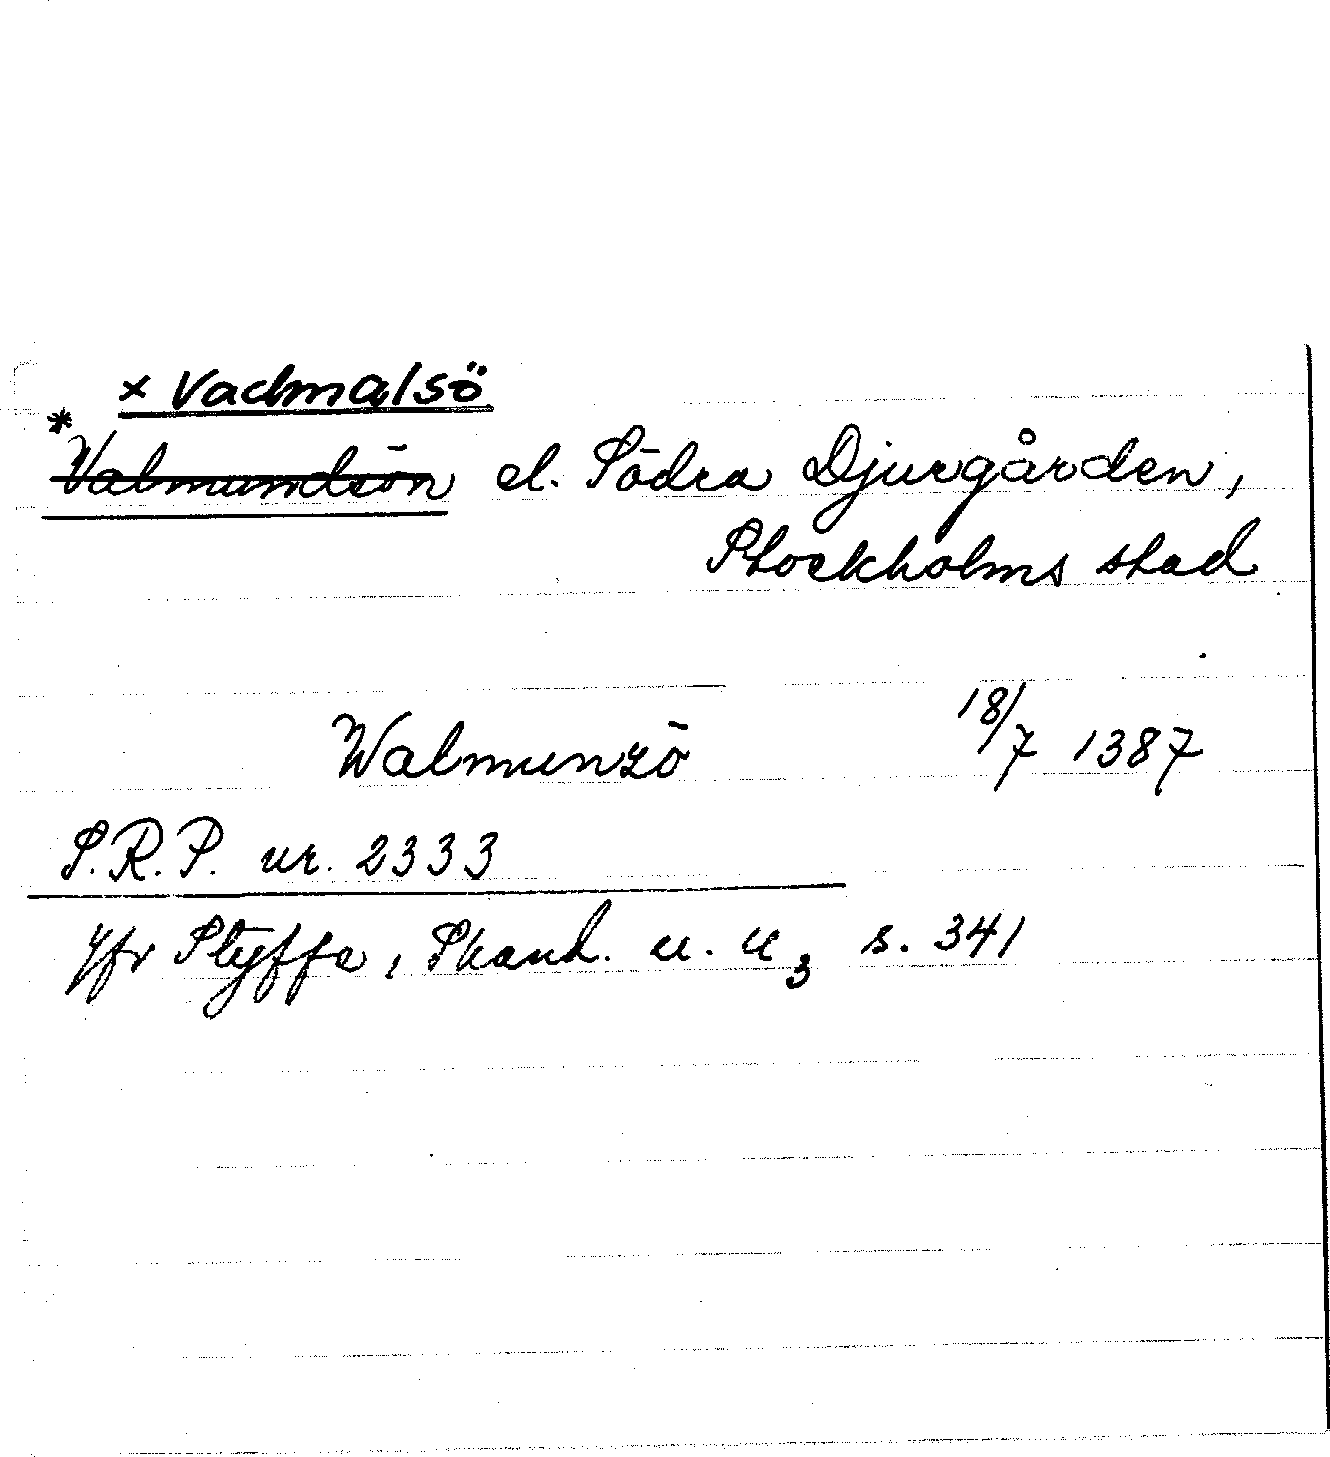 × Vadmalsö
* Valmundsön el. Södra Djurgården,
Stockholms stad
Walmunzö 18/7 1387
S.R.P. nr. 2333
Jfr Styffe, Skand. u. U3 s. 341